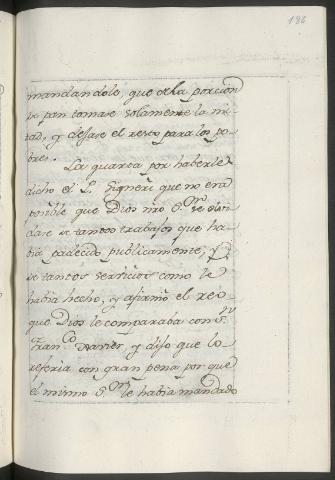 186
mandandolo, que de la porcion
de pan tomase solamente la mi-
tad, y dejase el resto para los po-
bres.
La quarta por haberle
dicho el P. Signeri que no era
posible que Dios nro S.or se olvi-
dase de tantos trabajos que ha-
bia padecido publicamente, y
de tantos servicios como le
habia hecho, y afirmó el reo
que Dios le comparaba con S.n
Fran.co Xavier, y dijo que lo
referia con gran pena por que
el mismo S.or le habia mandado